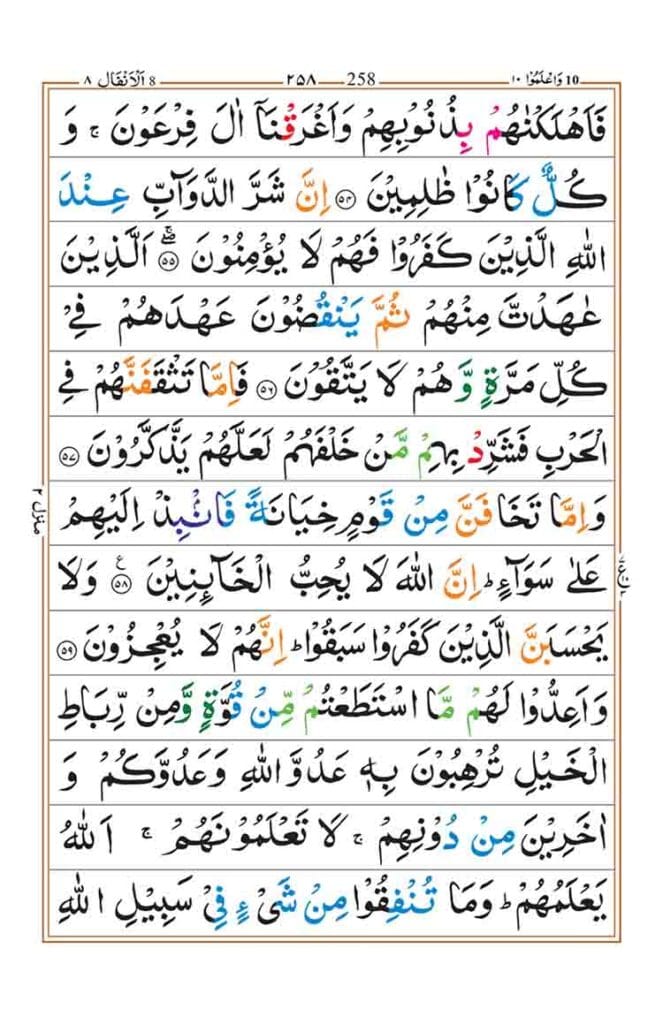 10 وَاعْلَمُوْٓا ١٠ 258 ٢٥٨ 8 اَلْاَنْفَال ٨
فَاَهْلَكْنٰهُمْ بِذُنُوْبِهِمْ وَاَغْرَقْنَاۤ اٰلَ فِرْعَوْنَ ۚ وَ
كُلٌّ كَانُوْا ظٰلِمِيْنَ ۝۵۴ اِنَّ شَرَّ الدَّوَآبِّ عِنْدَ
اللّٰهِ الَّذِيْنَ كَفَرُوْا فَهُمْ لَا يُؤْمِنُوْنَ ۖۚ۝۵۵ اَلَّذِيْنَ
عٰهَدْتَّ مِنْهُمْ ثُمَّ يَنْقُضُوْنَ عَهْدَهُمْ فِيْ
كُلِّ مَرَّةٍ وَّ هُمْ لَا يَتَّقُوْنَ ۝۵۶ فَاِمَّا تَثْقَفَنَّهُمْ فِي
الْحَرْبِ فَشَرِّدْ بِهِمْ مَّنْ خَلْفَهُمْ لَعَلَّهُمْ يَذَّكَّرُوْنَ ۝۵۷
وَاِمَّا تَخَافَنَّ مِنْ قَوْمٍ خِيَانَةً فَانْۢبِذْ اِلَيْهِمْ
عَلٰى سَوَآءٍ ؕ اِنَّ اللّٰهَ لَا يُحِبُّ الْخَآئِنِيْنَ ۝۵۸ ع وَلَا
يَحْسَبَنَّ الَّذِيْنَ كَفَرُوْا سَبَقُوْا ؕ اِنَّهُمْ لَا يُعْجِزُوْنَ ۝۵۹
وَاَعِدُّوْا لَهُمْ مَّا اسْتَطَعْتُمْ مِّنْ قُوَّةٍ وَّمِنْ رِّبَاطِ
الْخَيْلِ تُرْهِبُوْنَ بِهٖ عَدُوَّ اللّٰهِ وَعَدُوَّكُمْ وَ
اٰخَرِيْنَ مِنْ دُوْنِهِمْ ۚ لَا تَعْلَمُوْنَهُمْ ۚ اَللّٰهُ
يَعْلَمُهُمْ ؕ وَمَا تُنْفِقُوْا مِنْ شَيْءٍ فِيْ سَبِيْلِ اللّٰهِ
منزل ٢